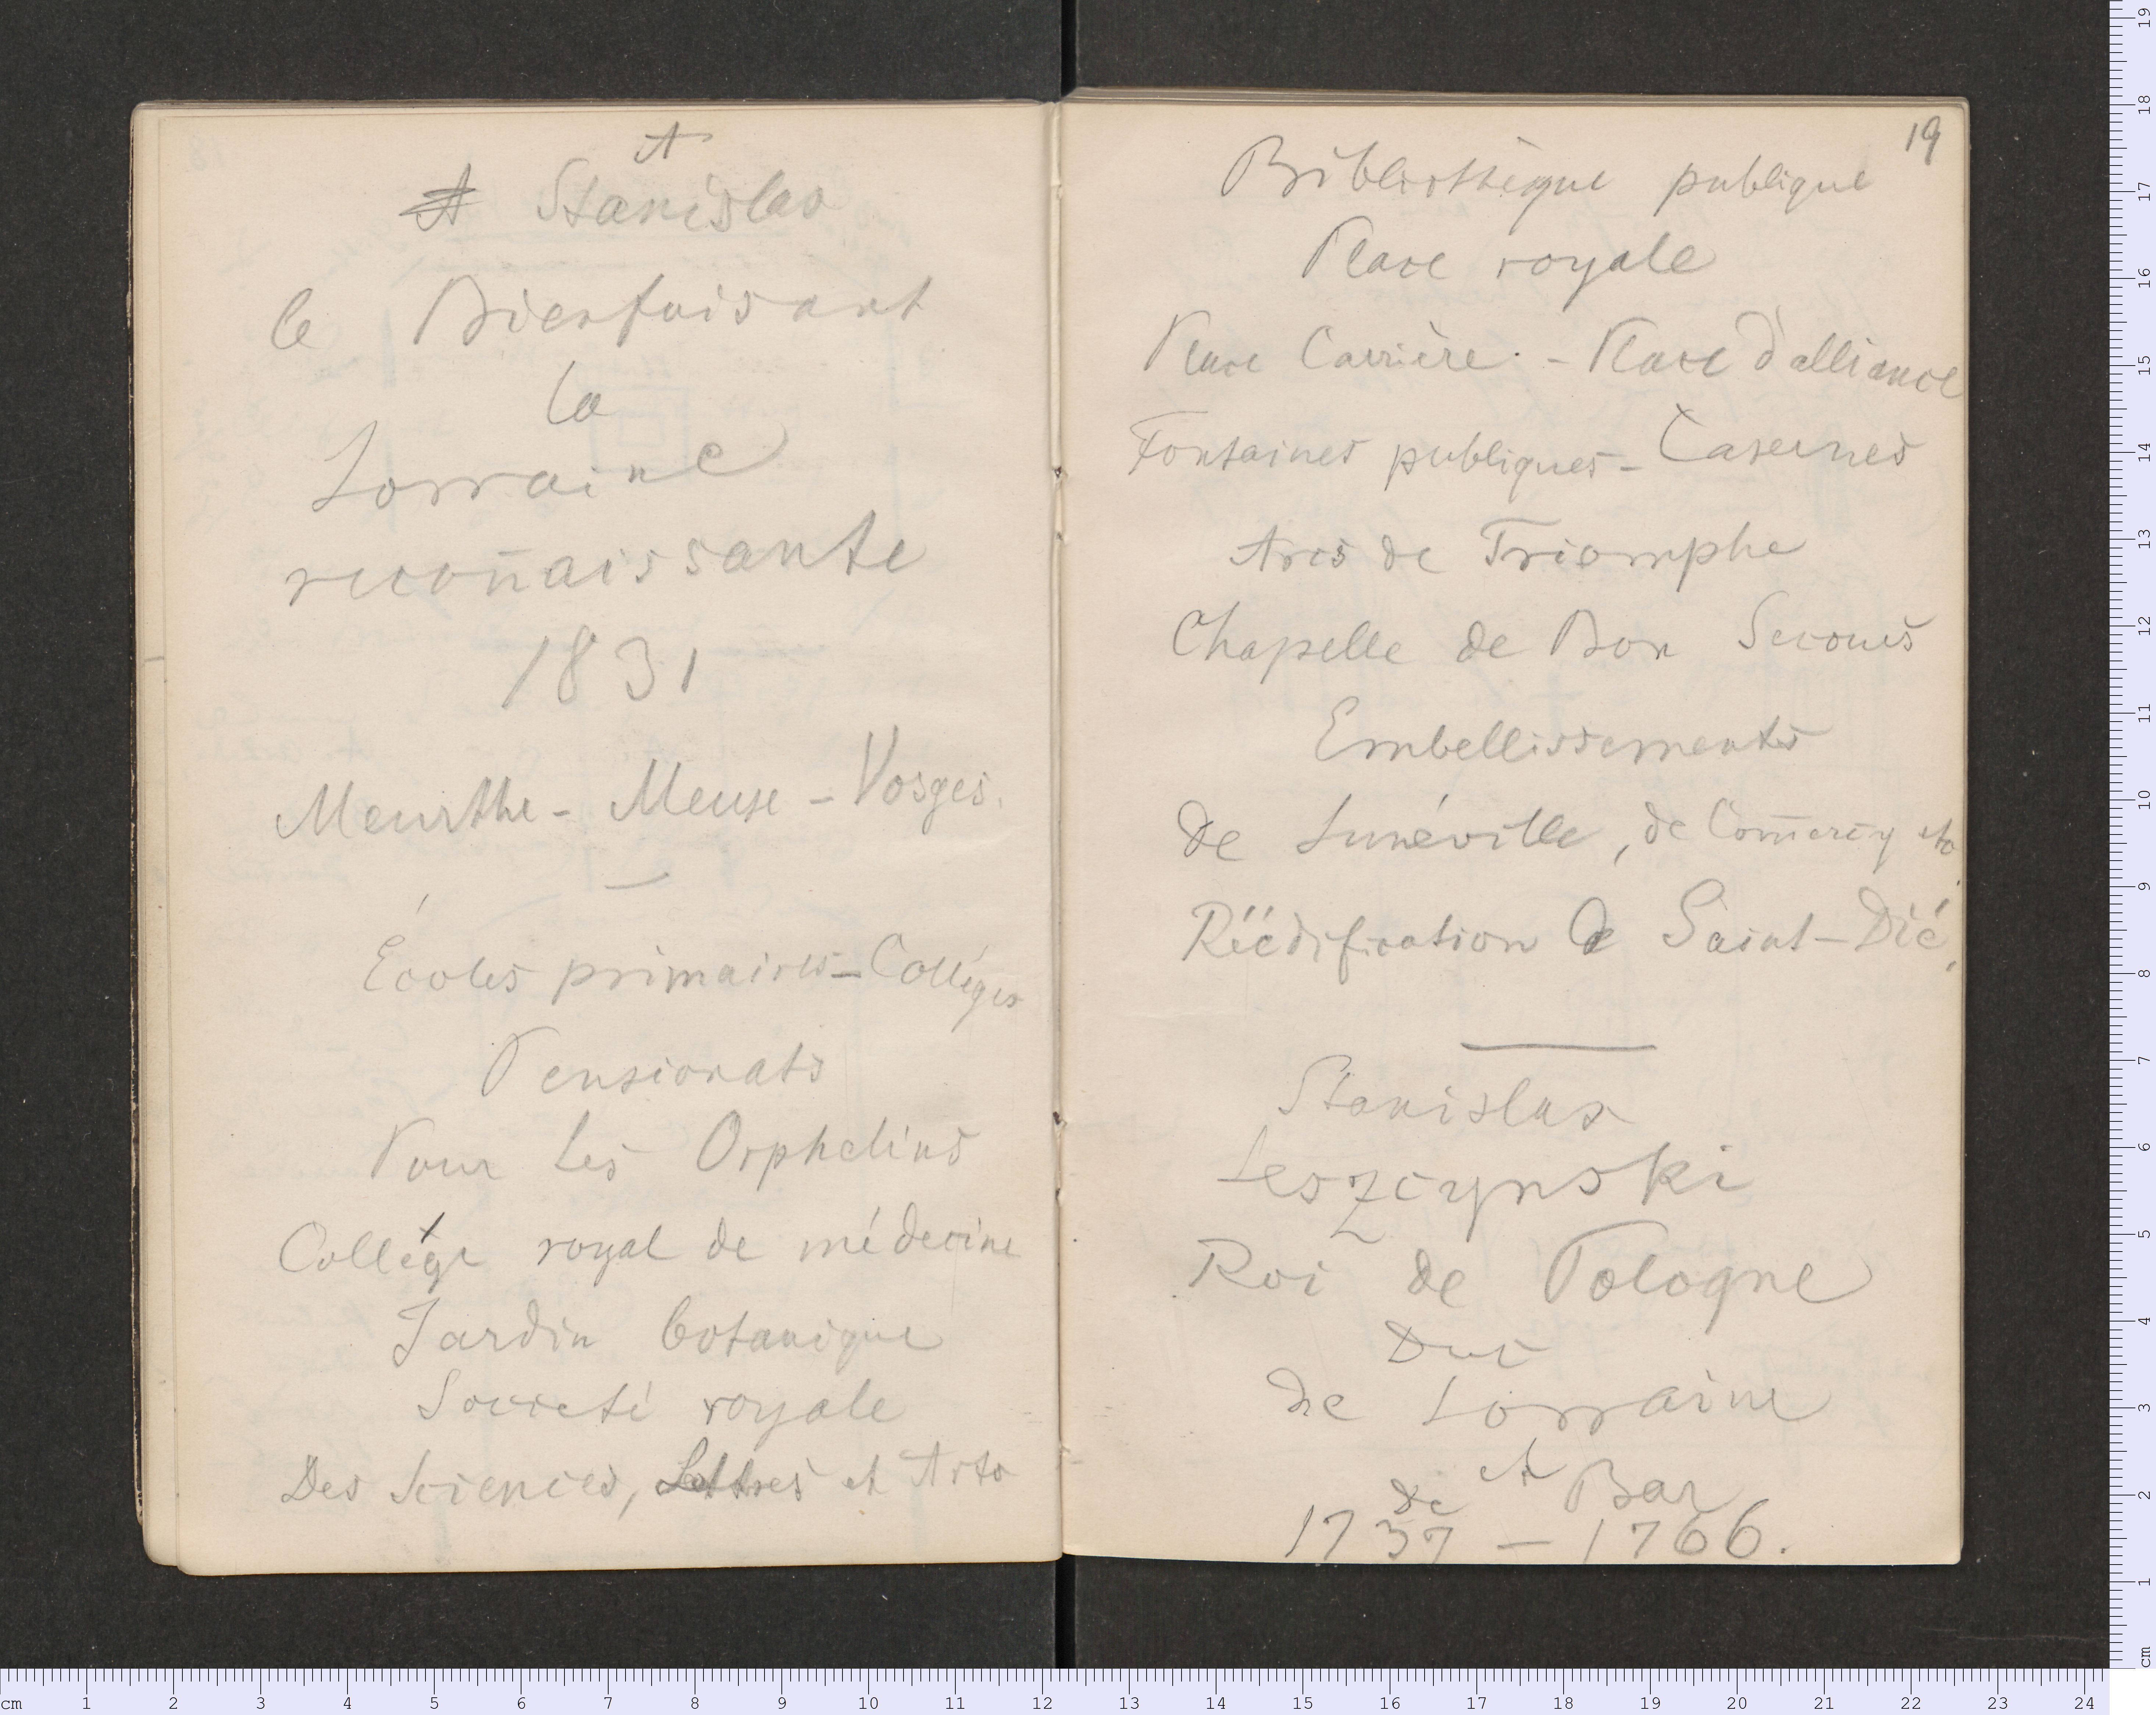 A
A Stanislas
le Bienfaisant
la
Lorraine
recon̄aissante
1831
Meurthe - Meuse - Vosges.
Écoles primaires - Collèges
Pensionats
Pour Les Orphelins
Collège royal de médecine
Jardin botanique
Societé royale
Des Sciences, Lettres et Arts
19
Bibliothèque publique
Place royale
Place Carrière. - Place d'alliance
Fontaines publiques - Casernes
Arcs de Triomphe
Chapelle de Bon Secours
Embellissements
de Lunéville, de Com̄ercy etc
Réédification de Saint-Dié.
Stanislas
Leszcynski
Roi de Pologne
Duc
de Lorraine
et
de Bar
1737 - 1766.